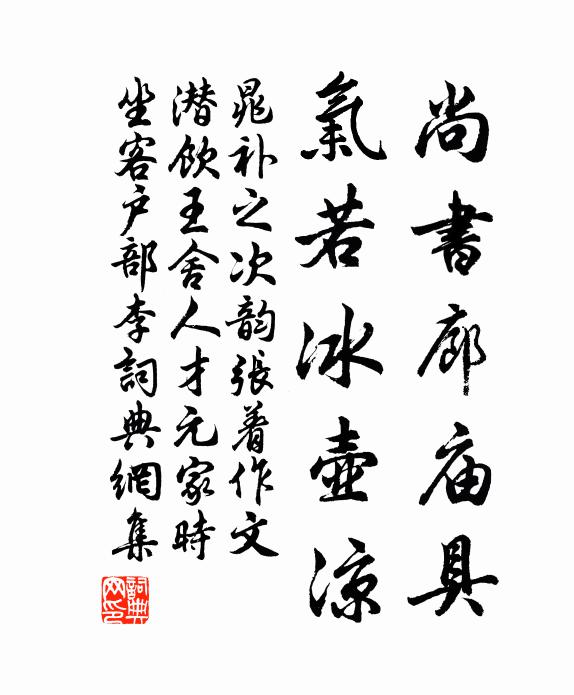 尚書廊庙具
氣若冰壺涼
晁补之次韵張着作文
潜飲王舍人才元家時
坐客户部李詞典網集
詞典网印